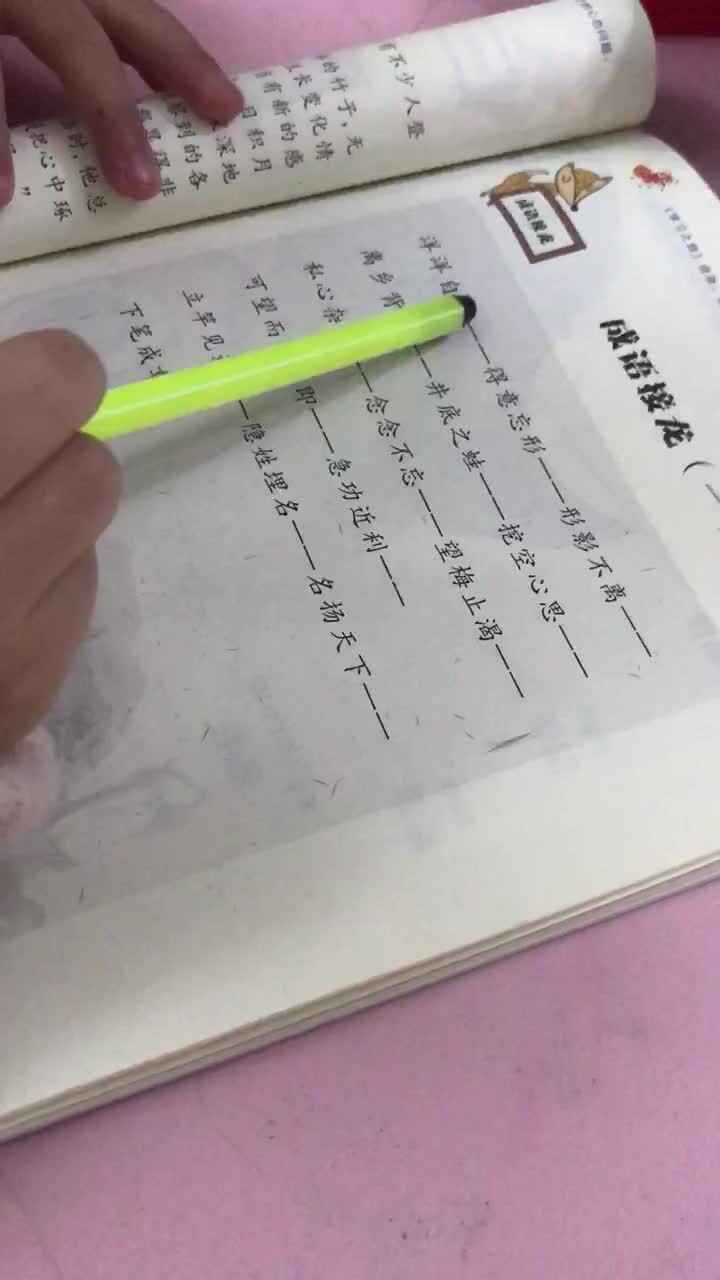 有不少人整
的竹子，无
长变化情
有新的感
日积月
深地
到的各
时，他总
把心中琢
”
成语接龙（一
成语接龙
洋洋自——得意忘形——形影不离——
离乡背——井底之蛙——挖空心思——
私心杂——念念不忘——望梅止渴——
可望而 即——急功近利——
立竿见——隐姓埋名——名扬天下——
下笔成